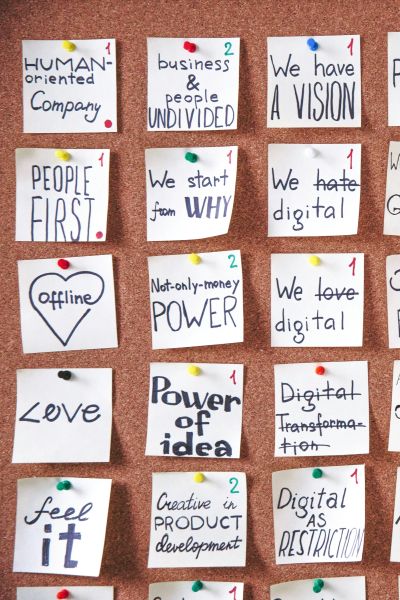 HUMAN-
oriented
Company
1
business
&
people
UNDIVIDED
2
We have
A VISION
1
PEOPLE
FIRST
1
We start
from WHY
1
We hate
digital
1
offline
Not-only-money
POWER
2
We love
digital
1
Love
Power
of
idea
1
Digital
Transforma-
tion
feel
it
Creative in
PRODUCT
development
2
Digital
AS
RESTRICTION
1